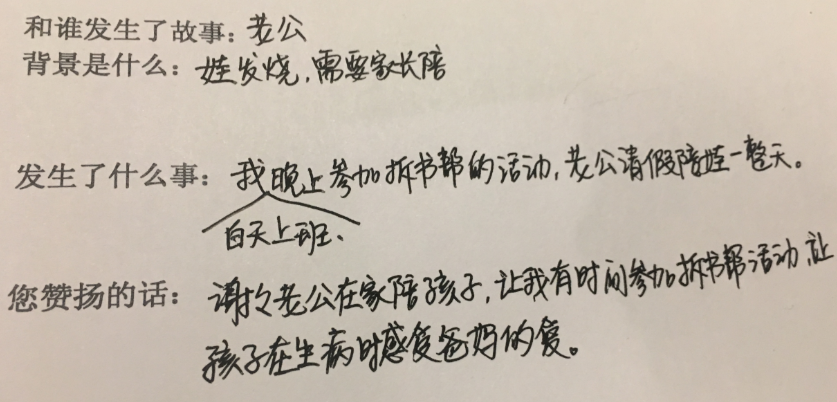 和谁发生了故事：老公
背景是什么：娃发烧，需要家长陪
发生了什么事：我晚上参加拆书帮的活动，老公请假陪娃一整天。
白天上班、
您赞扬的话：谢谢老公在家陪孩子，让我有时间参加拆书帮活动，让
孩子在生病时感受爸妈的爱。